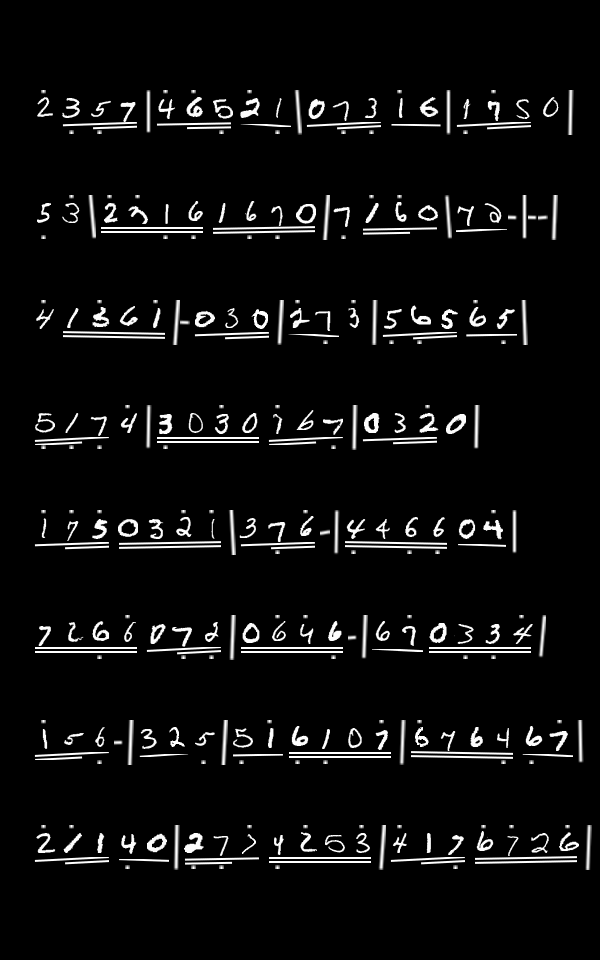 2 3 5 7 | 4 6 5 2 1 | 0 7 3 1 6 | 1 7 5 0 |
5 3 | 2 3 1 6 1 6 7 0 | 7 1 6 0 | 7 2 - | - - |
4 1 3 6 1 | - 0 3 0 | 2 7 3 | 5 6 5 6 5 |
5 1 7 4 | 3 0 3 0 7 6 7 | 0 3 2 0 |
1 7 5 0 3 2 1 | 3 7 6 - | 4 4 6 6 0 4 |
7 2 6 6 0 7 2 | 0 6 4 6 - | 6 7 0 3 3 4 |
1 5 6 - | 3 2 5 | 5 1 6 1 0 7 | 6 7 6 4 6 7 |
2 1 1 4 0 | 2 7 7 4 2 5 3 | 4 1 7 6 7 2 6 |